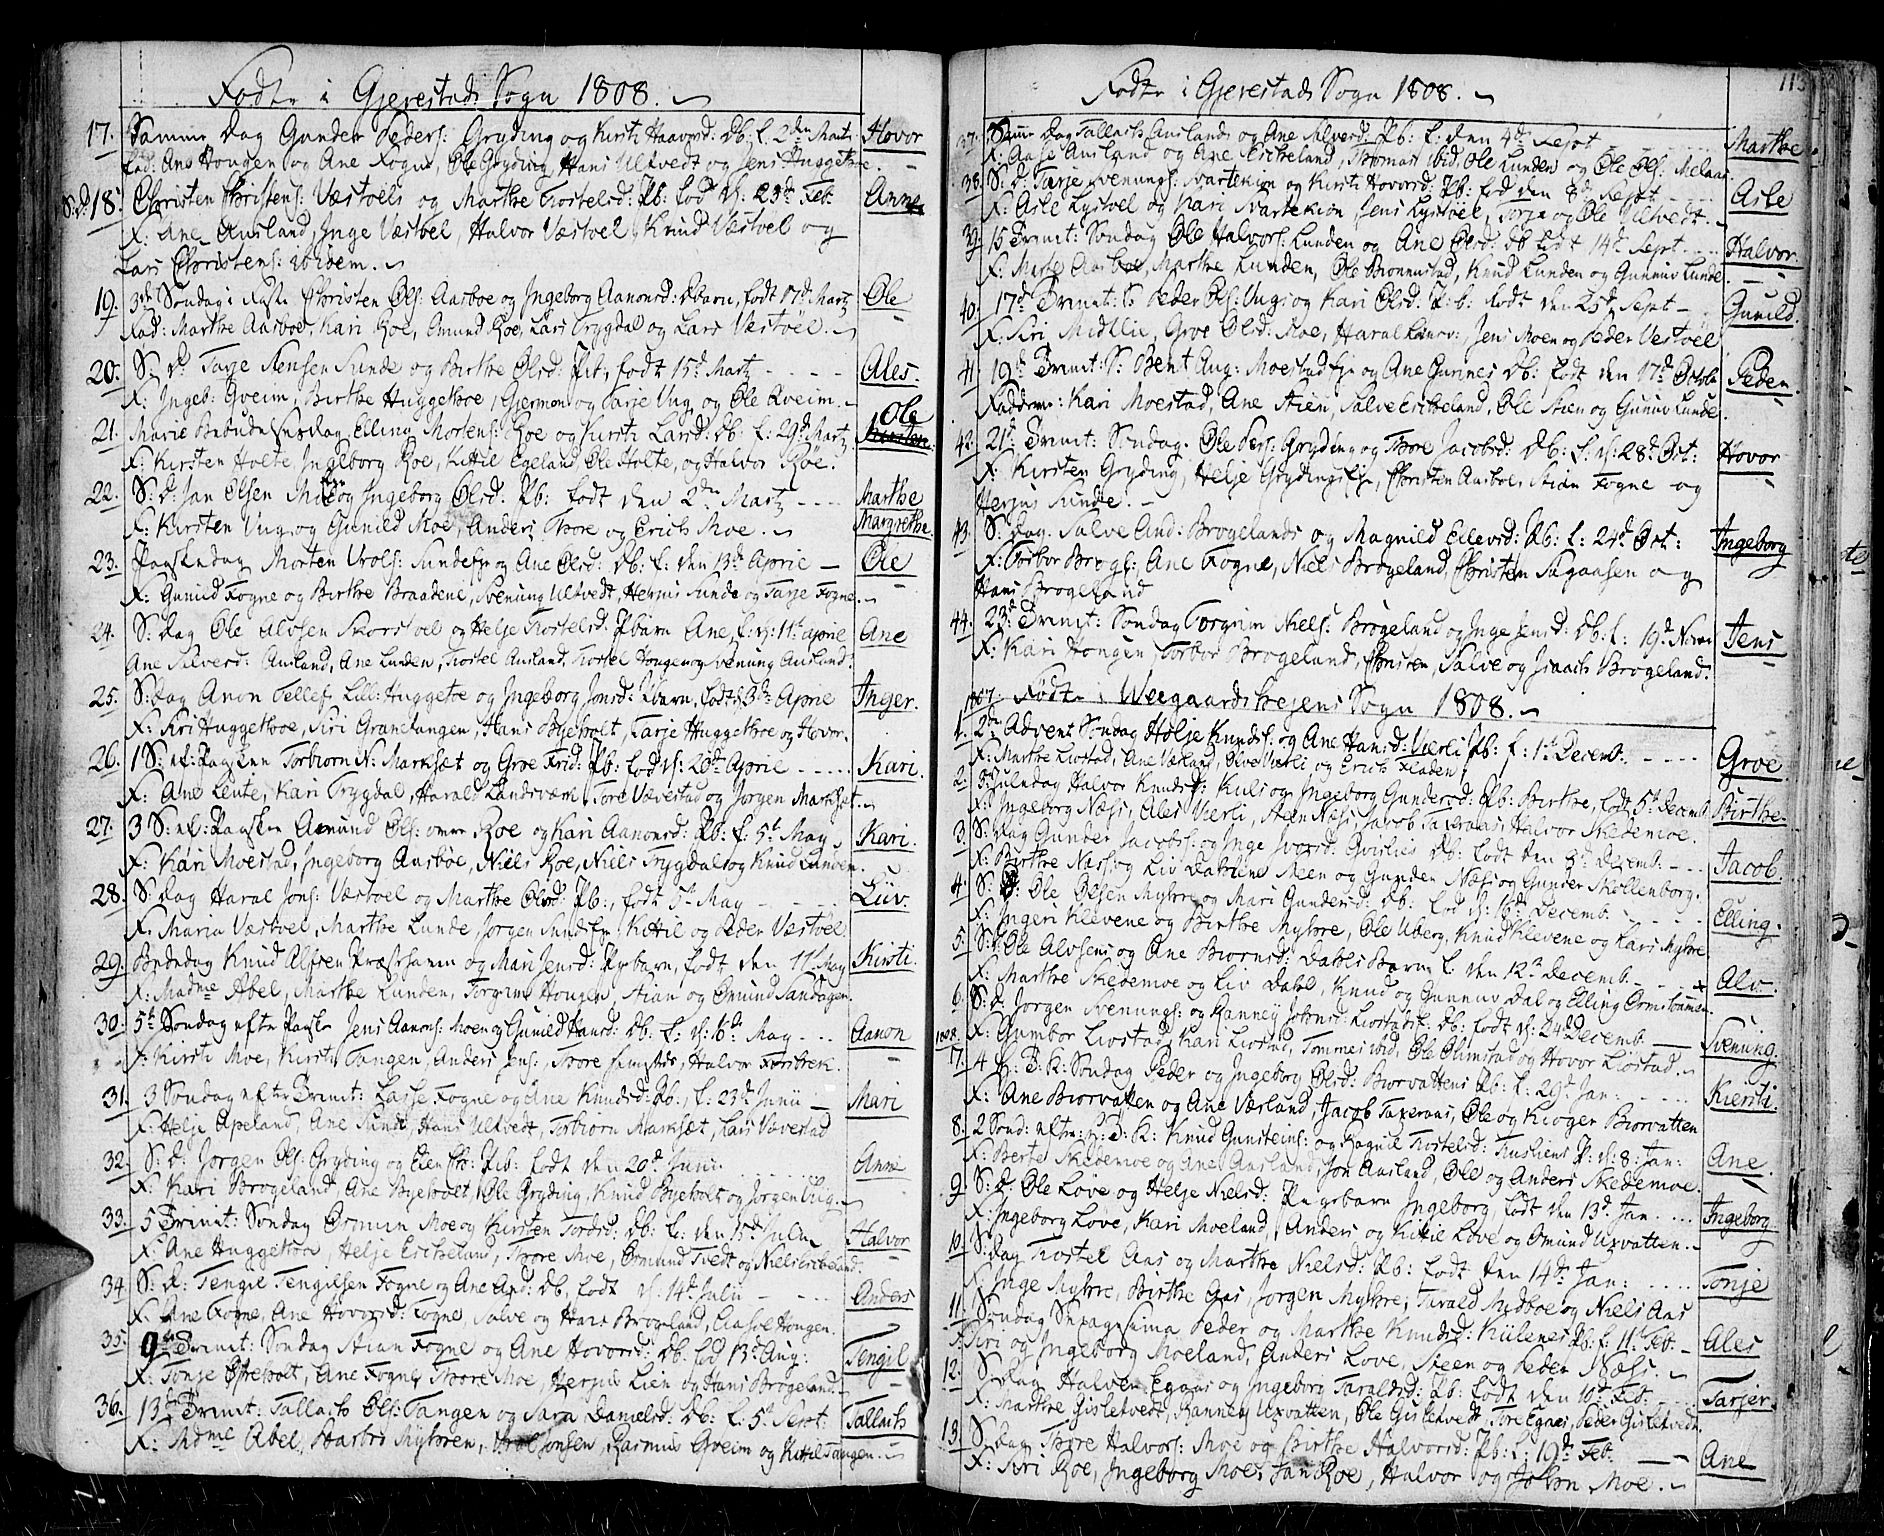 Fødte i Gjerestads Sogn 1808.
17. Samme Dag Gunder Peders: Gryding og Kirsti Haavord: Db: f. 2den Martz Hovor
Fad: Ane Hougen og Ane Fogne, Ole Gryding, Hans Ulfvedt og Jens Huggethoe.
S:D: 18. Christen Christens: Væstøels og Marthe Trostelsd: Pb: fød d: 23de Feb. Anne
F: Ane Ausland, Inge Væstøel, Halvor Væstøel, Knud Væstøel og
Lars Christens: ibidem.
19. 3de Søndag i Faste Christen Ols: Aasboe og Ingeborg Aanonsd: Dbarn, født 17d Martz Ole
Fad: Marthe Aasboe, Kari Roe, Amund Roe, Lars Trygdal og Lars Væstøel.
20. S: D: Tarje Stensen Sunde og Birthe Olsd: Pb: født 15d Martz Ales.
F: Ingeb: Qveim, Birthe Huggethoe, Gjermon og Tarje Ung og Ole Qveim.
21. Marie Bebudelsesdag Elling Mortens: Roe og Kirsti Larsd: Db: f: 29d Martz Ole
F: Kirsten Holte, Ingeborg Roe, Kittil Egeland, Ole Holte, og Halvor Roe.
22. S: D: Jan Olsen Moe og Ingeborg Olsd: Pb: født den 2den Martz Marthe
F: Kirsten Ung og Gunild Moe, Anders, Thore og Erich Moe. Margrethe.
23. Paaskedag Morten Urols: Sunde og Ane Olsd: Db: f: den 13d Aprie Ole
F: Gunild Fogne og Birthe Braadene, Svenung Ulfvedt, Herjus Sunde og Tarje Fogne.
24. S: Dag Ole Alvsen Skorstøel og Helje Trostelsd: Pbarn Ane, f: d: 11te Aprie Ane
Ane Salvesd: Ausland, Ane Lunden, Trostel Ausland, Trostel Hougen og Svenung Ausland:
25. S: Dag Anon Tellef Lill: Huggete og Ingeborg Jonsd: Pbarn, født 3de Aprie Inger.
F: Siri Huggethoe, Siri Granetangen, Hans Byeholt, Tarje Huggethoe og Hover.
26. 1 S: ef: Paasken Torbiorn N: Marksæt og Groe Frid: Pb: fød d: 20de Aprie Kari.
F: Ane Lente, Kari Trygdal, Harald Landsværk, Tore Væverstad og Jørgen Marksæt.
27. 3 S: ef: Paasken Amund Ols: omre Roe og Kari Aanonsd: Pb: f: 5t May Kari.
F: Kari Moestad, Ingeborg Aasbøe, Niels Roe, Niels Trygdal og Knud Lunden.
28. S: Dag Haral Jons: Væstøel og Marthe Olsd: Pb:, født 5t May Liiv.
F: Maria Væstøel, Marthe Lunde, Jørgen Sund, Kittil og Peder Væstøel
29. Bededag Knud Alfsen Præsthamn og Mari Jensd: Pigebarn, født den 11t May Kirsti.
F: Madme Abel, Marthe Lunden, Torgrim Hougen, Stian og Omund Sandagen.
30. 5te Søndag efter Paaske Jens Aanons: Moen og Gunild Hansd: Db: f: d: 16d May Aanon
F: Kirsti Moe, Kirsti Tangen, Anders Jens: Thore, Halvor Forsbek.
31. 3 Søndag efter Trinit: Lasse Fogne og Ane Knudsd: Pb:, f: 23d Junii Mari
F: Helje Apeland, Ane Sunde, Hans Ulfvedt, Torbiorn Marksæt, Lars Væverstad
32. S: D: Jørgen Ols: Gryding og Elen Pb: født den 20d Junii Anne
F: Kari Brøgeland, Ane Byeholt, Ole Gryding, Knud Byeholt og Jørgen Ung.
33. 5 Trinit: Søndag Osmun Moe og Kirsten Tordsd: Db: f: den 15d Julii Halvor
F: Ane Huggethoe, Helje Escheland, Thore Moe, Osmund Tvedt og Niels Escheland.
34. S: D: Tengil Tengilsen Fogne og Ane And: Db, født d: 14d Julii Anders
F: Ane Fogne, Ane Hovorsd: Fogne, Salve og Hans Brøgeland, Aasov Hougen.
35. 9de Trinit: Søndag Stian Fogne og Ane Hovorsd: Db: fød 13d Aug: Tengil
F: Tonje Espeholt, Ane Fogne, Thore Moe, Herjus Lien og Hans Brøgeland.
36. 13d Trinit: Tallachs Ols: Tangen og Sara Danielsd: Db: f: 5t Sept: Tallachs
F: Mdme Abel, Myhren, Jensen, Rasmus Qveim og Kittil Tangen.
Fødte i Gjerestads Sogn 1808. 113
37. Samme Dag Tallachs Auslands og Ane Salvesd: Pb: f: den 4de Sept Marthe
F: Aasje Ausland og Ane Escheland, Thomas ibid, Ole Lunden og Ole Ols: Melaas
38. S: D: Tarje Svenungs: Svartekion og Kirsti Hovorsd: Pb: fød den 8d Sept Asle
F: Asle Lystøel og Kari Svartekion, Jens Lystøel, Torje og Ole Ulfvedt.
39. 15 Trinit: Søndag Ole Halvors: Lunden og Ane Olsd: Db født 14d Sept Halvor
F: Marte Aasboe, Marthe Lunden, Ole Bronnestad, Knud Lunden og Gunnuv Lunde
40. 17d Trinit: S: Peder Ols: Ungs og Kari Olsd: P:b: født den 25d Sept Gunild.
F: Siri Midlie, Groe Olsd: Roe, Haral, Jens Moen og Peder Væstøel
41. 19d Trinit: S: Bent Aug: Moestad og Ane Gurines Db: født den 17d Octob Peder
Faddere: Kari Moestad, Ane Stien, Salve Escheland, Ole Stien og Gunuv Lunde.
42. 21d Trinit: Søndag. Ole Pers: Gryding og Thore Jacobsd: Db: f. d: 28d Oct: Hovor
F: Kirsten Gryding, Helje Gryding, Christen Aasboe, Stian Fogne og
Herjus Sunde.
43. S: Dag. Salve And: Brøgelands og Magnild Ellevsd: Pb: f: 24d Oct: Ingeborg
F: Torbor Brøgl:, Ane Fogne, Niels Brøgeland, Christen Aagaasen og
Hans Brøgeland
44. 23d Trinit: Søndag Torgrim Niels: Brøgeland og Inge Jensd: Db: f: 19d Novem Jens
F: Kari Hougen, Torbor Brøgeland, Christen, Salve og Isaach Brøgeland.
1807. Fødte i Weegaardsheyens Sogn 1808.
1. 2den Advent Søndag Holje Knuds: og Ane Hansd: Værli Pb: f: 1te Decemb. Groe
F: Marthe Liostad, Ane Værland, Olive Værli og Erich Fladen
2. 3 Juledag Halvor Knuds: Kuli og Ingeborg Gundersd: Pb: Birthe, født 5te Decemb Birthe.
F: Ingeborg Næss, Ales Værli, Steen Næss, Jacob Taxeraas, Halvor Skedemoe.
3. S: Dag Gunder Jacobs: og Inge Ivorsd: Qvisties Db: født den 3d Decemb. Jacob.
F: Birthe Næss og Liv Dahlen, Steen og Gunder Næss og Gunder Mollenborg.
4. S: D: Ole Olsen Myhre og Mari Gundersd: Db: fød d: 16de Decemb. Elling.
F: Ingeri Klevene og Birthe Myhre, Ole Uberg, Knud Klevene og Lars Myhre
5. S: Ole Alvsens og Ane Biornsd: Dahls Barn f. den 12te Decemb. Alv:
F: Marthe Skedemoe og Liv Dahl, Knud og Gunnuv Dal og Elling Ormstønmen.
6. S: D: Jorgen Svenungs: og Ranney Johnsd: Liostad: Db: født d: 24de Decemb Svenung.
1808. F: Gumbor Liostad, Kari Liostad, Tommes ibid, Ole Olimstad og Hovor Liostad.
7. 4 H: T: K: Søndag Peder og Ingeborg Olsd: Biorvattens Pb: f: 29d Jan: Kiersti.
F: Ane Biorvatten og Ane Værland, Jacob Taxeraas, Ole og Kioger Biorvatten
8. 2 Sønd: efter: H: T: K: Knud Gunsteins: og Ragnil Trostelsd: Trusliens P: d: 8: Jan: Ane.
F: Berte Skedemoe og Ane Aasland, Jon Aasland, Ole og Anders Skedemoe.
9. S: D: Ole Løve og Helje Nielsd: Pigebarn Ingeborg, født den 13d Jan Ingeborg
F: Ingeborg Løve, Kari Moeland, Anders og Kittil Løve og Omund Uxvatten.
10. S: Dag Trostel Aas og Marthe Nielsd: Pb: født den 14d Jan: Tonje
F: Inge Myhre, Birthe Aas, Jørgen Myhre, Tarald Midboe og Niels Aas
11. Søndag Sexagesima Peder og Marthe Knudsd: Kiilenes Pb: f. 11t Feb. Ales
F: Siri og Ingeborg Moeland, Anders Løve, Steen og Peder Næss.
12. S: Dag Halvor Egaas og Ingeborg Taraldsd: Pb: født den 10d Feb. Tarjer
F: Marthe Gisletvedt, Ranney Uxvatten, Ole Gisletvedt, Tore Egnes, Peder Gisletvedt
13. S: Dag Thore Halvors: Moe og Birthe Halvorsd: Pb: f: 19de Feb. Ane
F: Siri Roe, Ingeborg Moe, Jan Roe, Halvor og John Moe.